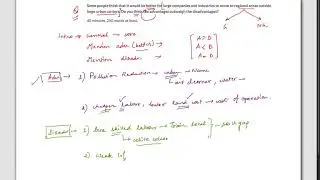 Some people think that it would be better for large companies and industries to move to regional areas outside
large urban centers. Do you think the advantages outweigh the disadvantages?
40 minutes, 250 words at least.
Intro → General → Some
Mention adv (better)
Mention disadv
A > D
A < D
A = D
Adv 1) Pollution Reduction → urban → Noise
water
2) cheaper labour, lower land cost → cost of operation
Disadv 1) less skilled labour → Train local
skill gap
2) Weak